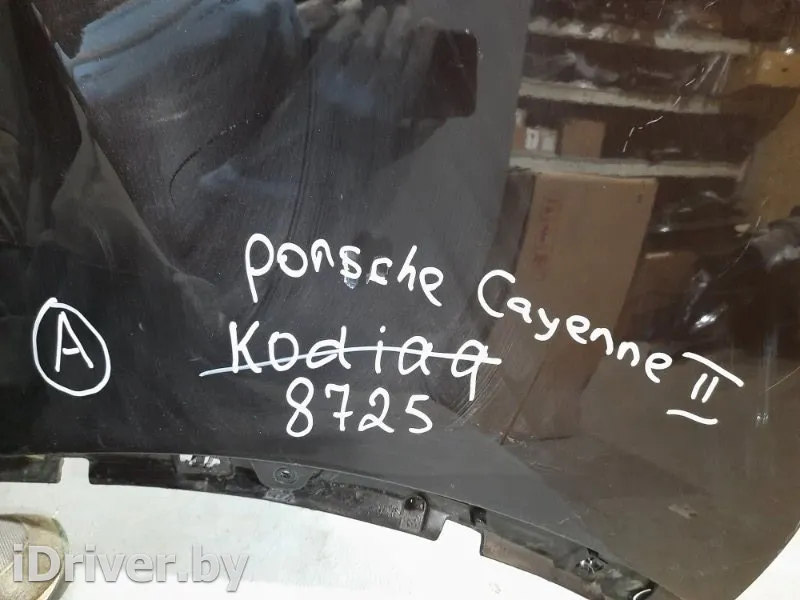 Porsche Cayenne II
A
Kodiaq
8725
iDriver.by